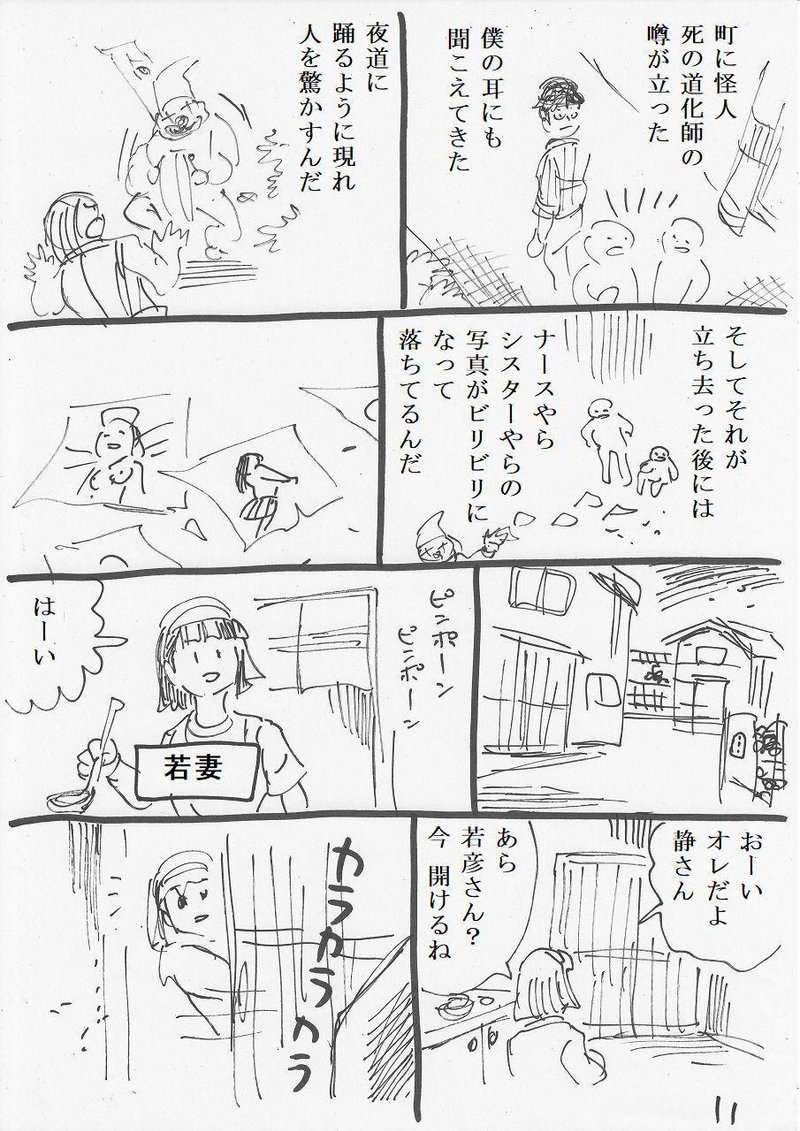 町に怪人
死の道化師の
噂が立った
僕の耳にも
聞こえてきた
夜道に
踊るように現れ
人を驚かすんだ
そしてそれが
立ち去った後には
ナースやら
シスターやらの
写真がビリビリに
なって
落ちてるんだ
ピンポーン
ピンポーン
はーい
若妻
おーい
オレだよ
静さん
あら
若彦さん？
今 開けるね
カラカラカラ
11